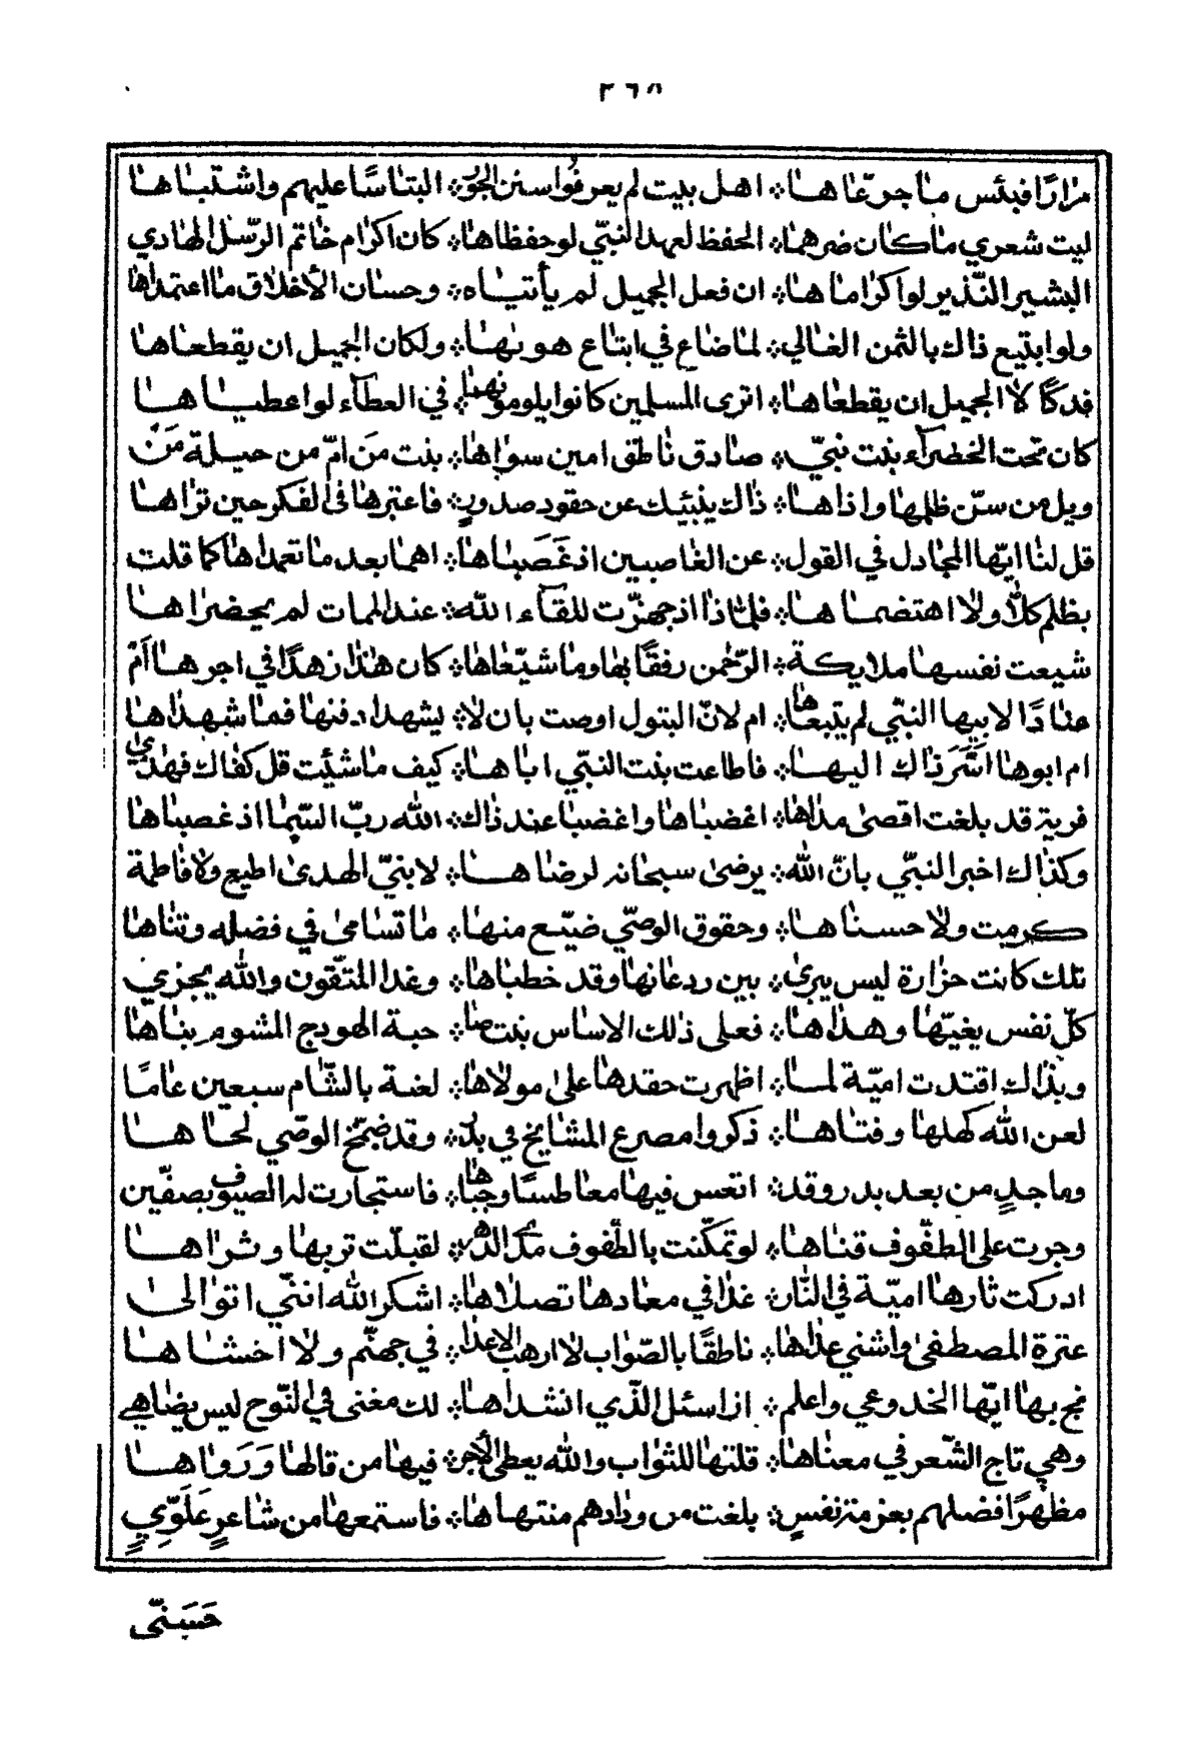 ٢٦٨
مرارًا فبئس ما جرّعاها ⁘ اهل بيت لم يعرفوا سنن الجور ⁘ التباسًا عليهم واشتباها
ليت شعري ما كان ضرهما ⁘ الحفظ لعهد النبّي لو حفظاها ⁘ كان اكرام خاتم الرّسل الهادي
البشير النّذير لو اكراماها ⁘ ان فعل الجميل لم يأتياه ⁘ وحسان الأخلاق ما اعتمداها
ولو ابتيع ذاك بالثمن الغالي ⁘ لما ضاع في ابتاع هويها ⁘ ولكان الجميل ان يقطعاها
فدكًا لا الجميل ان يقطعاها ⁘ اترى المسلمين كانوا يلومونهما ⁘ في العطآء لو اعطياها
كان تحت الخضرآء بنت نبيّ ⁘ صادق ناطق امين سواها ⁘ بنت مَن امّ من حيلة مَن
ويل من سنّ ظلمها واذاها ⁘ ذاك ينبئيك عن حقود صدورٍ ⁘ فاعتبرها في الفكر حين تراها
قل لنا ايّها المجادل في القول ⁘ عن الغاصبين اذ غَصَباها ⁘ اهما بعد ما تعمداها كما قلت
بظلم كلّا ولا اهتضماها ⁘ فلماذا اذ جهزّت للقآء الله ⁘ عند الممات لم يحضراها
شيعت نفسها ملايكة ⁘ الرّحمن رفقًا بها وما شيّعاها ⁘ كان هذا زهدًا في اجرها اَمْ
عنادًا لابيها النبّي لم يتبعاها ⁘ ام لانّ البتول اوصت بان لا ⁘ يشهدا دفنها فما شهداها
ام ابوها اسَرّ ذاك اليها ⁘ فاطاعت بنت النبّي اباها ⁘ كيف ما شئت قل كفاك فهذي
فرية قد بلغت اقصى مداها ⁘ اغضباها واغضبا عند ذاك ⁘ الله ربّ السّما اذ غصباها
وكذاك اخبر النبّي بانّ الله ⁘ يرضى سبحانه لرضاها ⁘ لا بنيّ الهدى اطيع ولا فاطمة
كرمت ولا حسناها ⁘ وحقوق الوصّي ضيّع منها ⁘ ما تسامى في فضله وتناها
تلك كانت حزارة ليس يبرى ⁘ بين ردعانها وقد خطباها ⁘ وغدا المتقون والله يجزي
كلّ نفس بغيّها وهداها ⁘ فعلى ذلك الاساس بنت صا ⁘ حبة الهودج المشوم بناها
وبذاك اقتدت اميّة لما ⁘ اظهرت حقدها على مولاها ⁘ لعنة بالشّام سبعين عامًا
لعن الله كهلها وفتاها ⁘ ذكروا مصرع المشايخ في بدر ⁘ وقد ضمّخ الوصّي لحاها
وما جدٍ من بعد بدر وقد ⁘ اتعس فيها معاطسًا وجباها ⁘ فاستجارت له السيوف بصفّين
وجرت على الطفّوف قناها ⁘ لو تمكّنت بالطّفوف مدى الدّهر ⁘ لقبلّت تربها وثراها
ادركت ثارها اميّة في النّار ⁘ غدا في معادها تصلاها ⁘ اشكر الله انّني اتوالى
عترة المصطفى واشني عداها ⁘ ناطقًا بالصّواب لا ارهب الاعدا ⁘ في جهنّم ولا اخشاها
نج بها ايّها الخدوعي واعلم ⁘ ان اسئل الّذي انشداها ⁘ لك مغنى في النّوح ليس يضاهي
وهي تاج الشّعر في معناها ⁘ قلتها للثواب والله يعطى الأجر ⁘ فيها من قالها وَرَواها
مظهرًا فضلهم بعزمة نفسٍ ⁘ بلغت من ودادهم منتهاها ⁘ فاستمعها من شاعرٍ عَلَوّيٍ
حَسَنّى